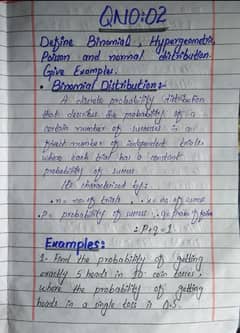 QNO:02
Define Binomial, Hypergeometric,
Poison and normal distribution.
Give Examples.
• Binomial Distribution:-
A discrete probability distribution
that describes the probability of a
certain number of success in a
fixed number of independent trials,
where each trial has a constant
probability of success.
Its characterized by:
• n = no. of trials , • x = no. of success
• p = probability of success , • q =
∴ P+q = 1
Examples:
1- Find the probability of getting
exactly 5 heads in 10 coin tosses,
where the probability of getting
heads in a single toss is 0.5.